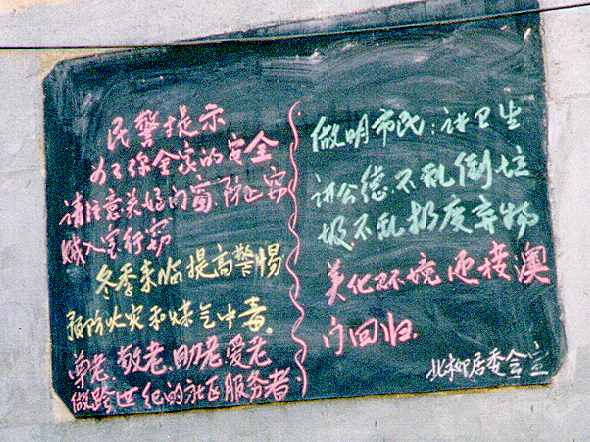 民警提示
为了你全家的安全
请注意关好门窗,防止窃
贼入室行窃
冬季来临提高警惕
预防火灾和煤气中毒。
尊老、敬老、助老、爱老
做跨世纪的社区服务者
做明市民:讲卫生
讲公德不乱倒垃
圾不乱扔废弃物
美化环境迎接澳
门回归.
居委会宣